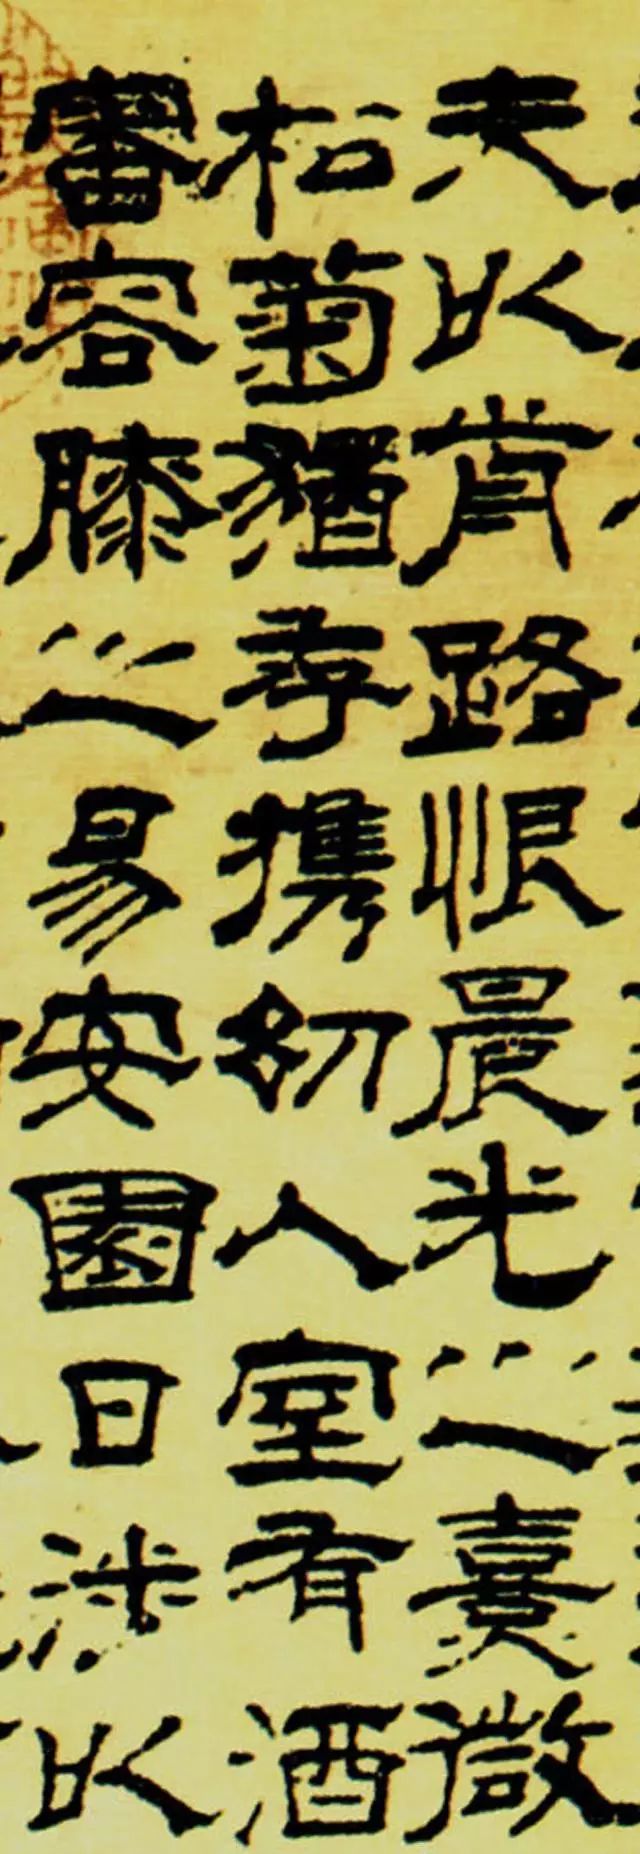 夫以前路恨晨光之熹微
松菊猶存携幼入室有酒
審容膝之易安園日涉以